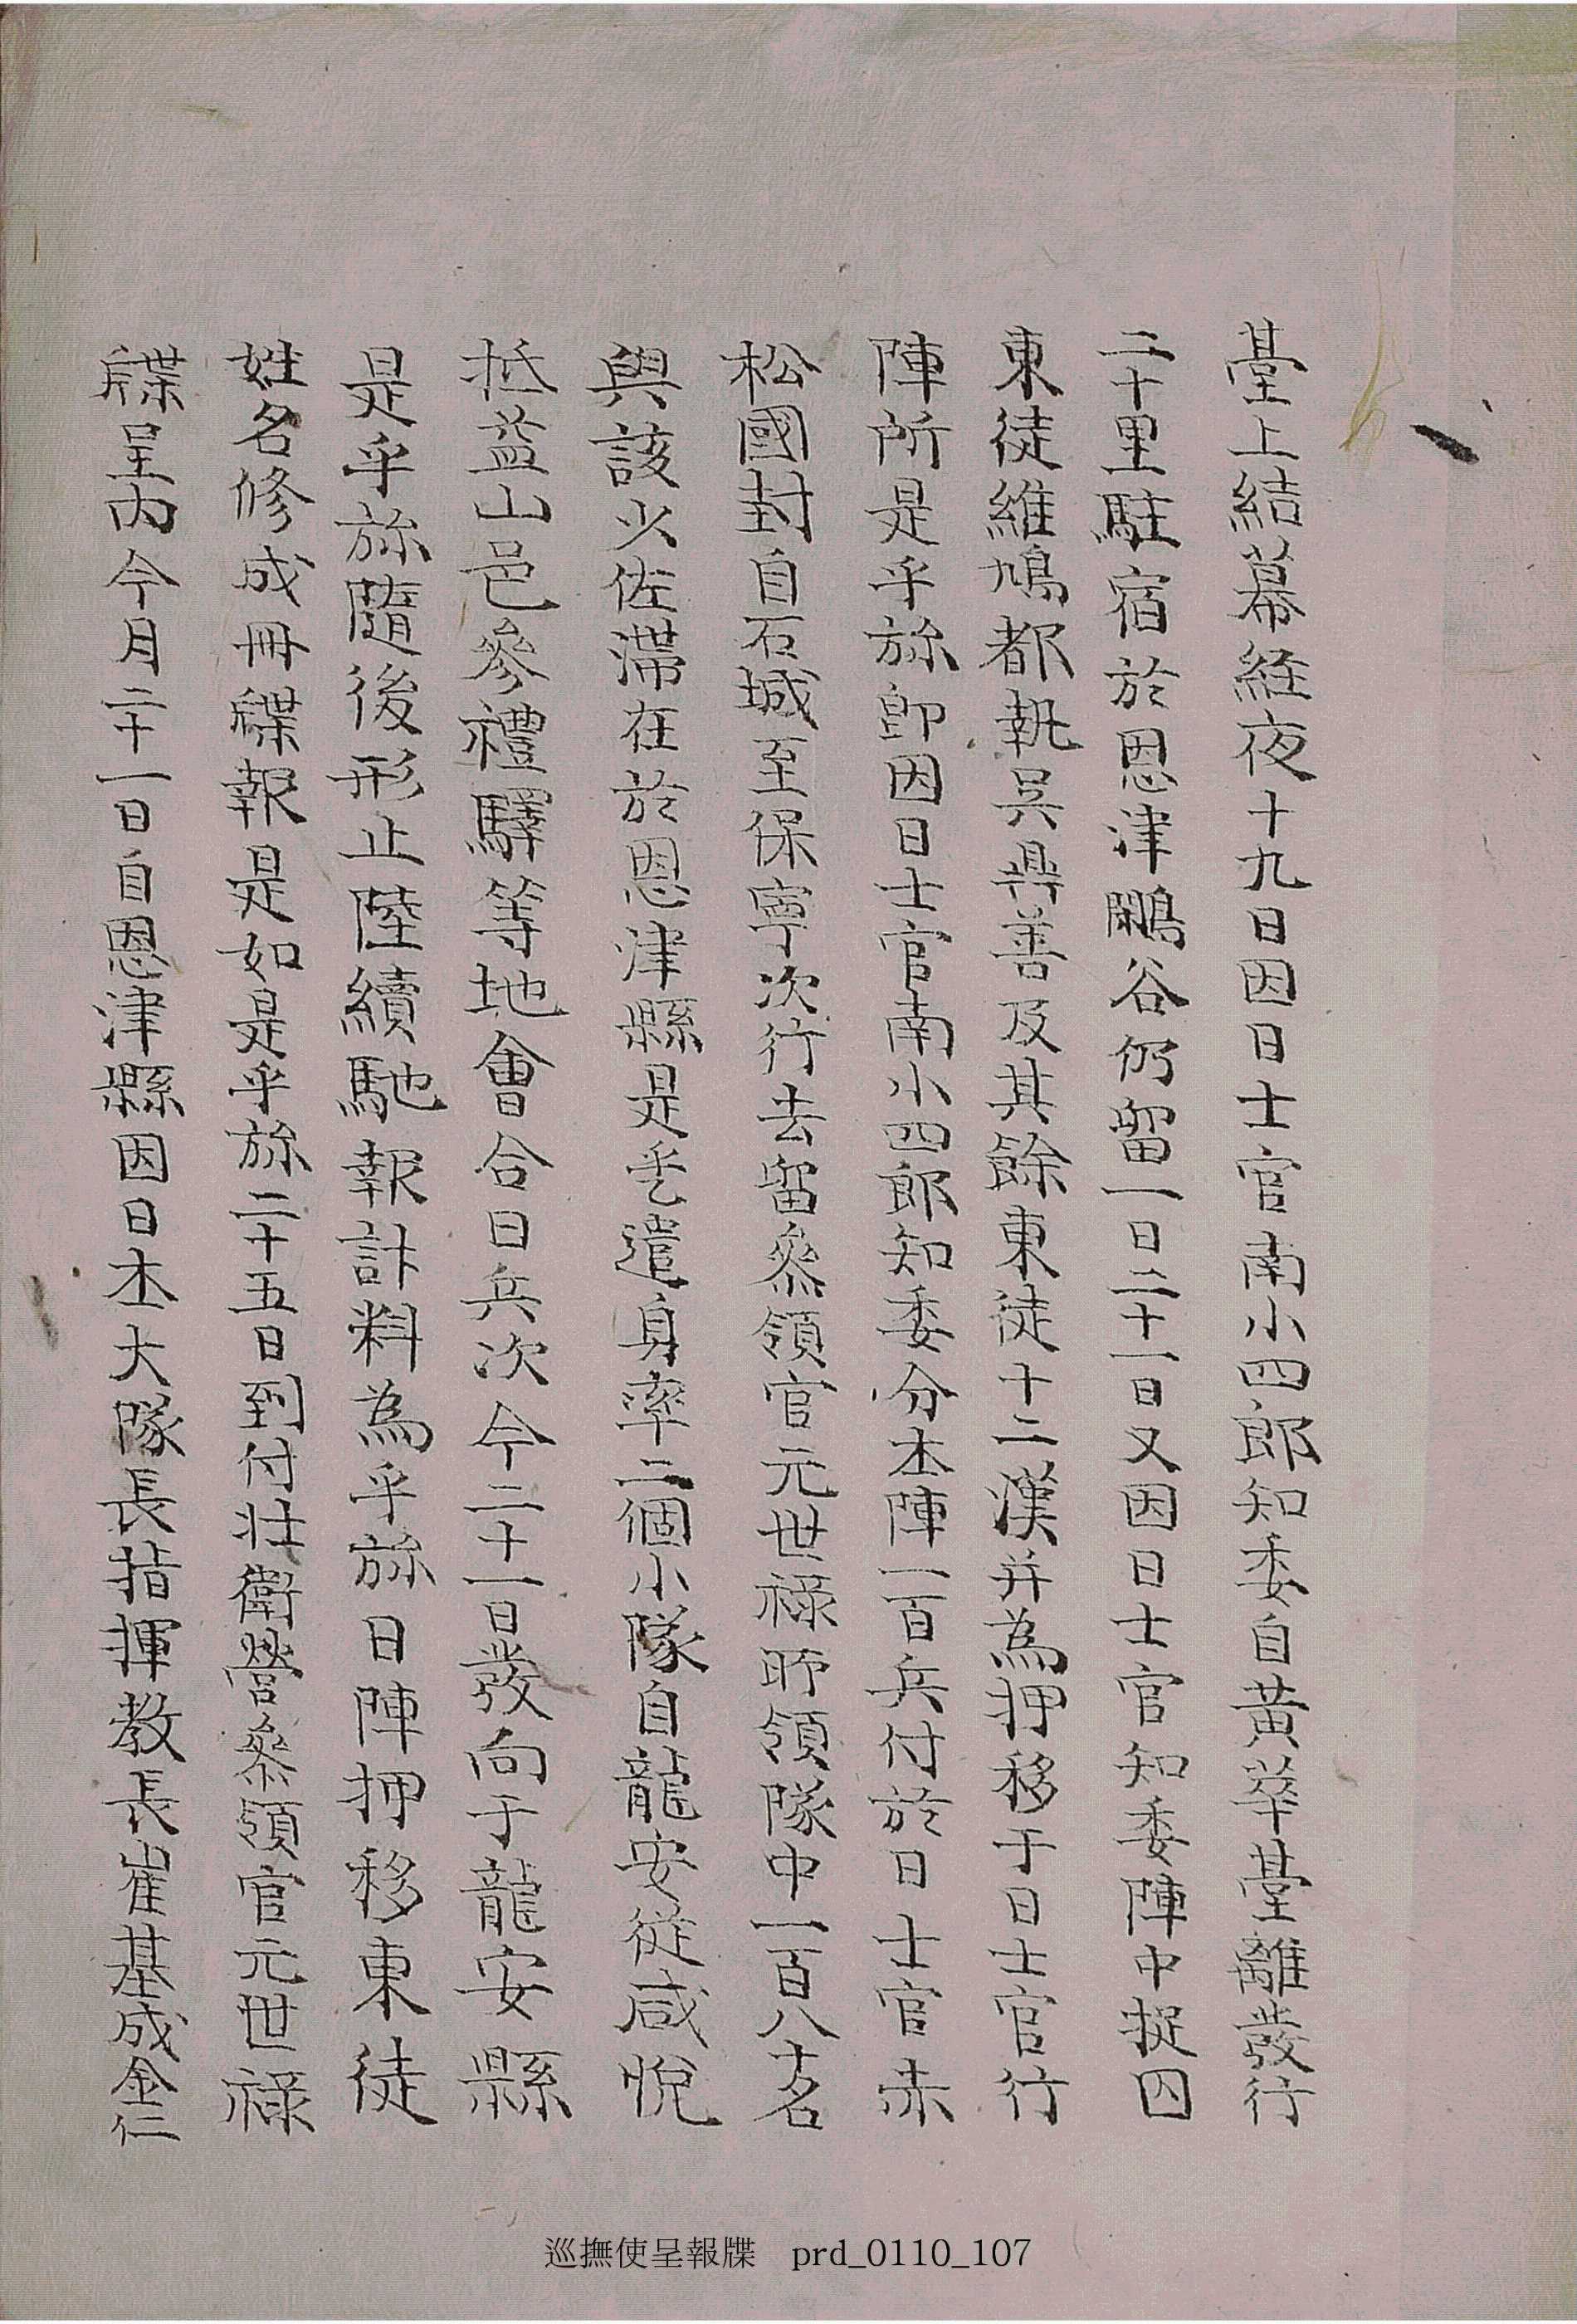 臺上結幕経夜十九日因日士官南小四郎知委自黃華臺離發行
二十里駐宿於恩津鵬谷仍留一日二十一日又因日士官知委陣中捉囚
東徒維鳩都執吳鼎善及其餘東徒十二漢并為押移于日士官行
陣所是乎旀卽因日士官南小四郎知委分本陣一百兵付於日士官赤
松國封自石城至保寧次行去留叅領官元世祿所領隊中一百八十名
與該少佐滯在於恩津縣是乎遣身率二個小隊自龍安從咸悅
抵益山邑參禮驛等地會合日兵次今二十一日發向于龍安縣
是乎旀隨後形止陸續馳報計料為乎旀日陣押移東徒
姓名修成冊牒報是如是乎旀二十五日到付壯衛營叅領官元世祿
牒呈內今月二十一日自恩津縣因日本大隊長指揮教長崔基成金仁
巡撫使呈報牒 prd_0110_107